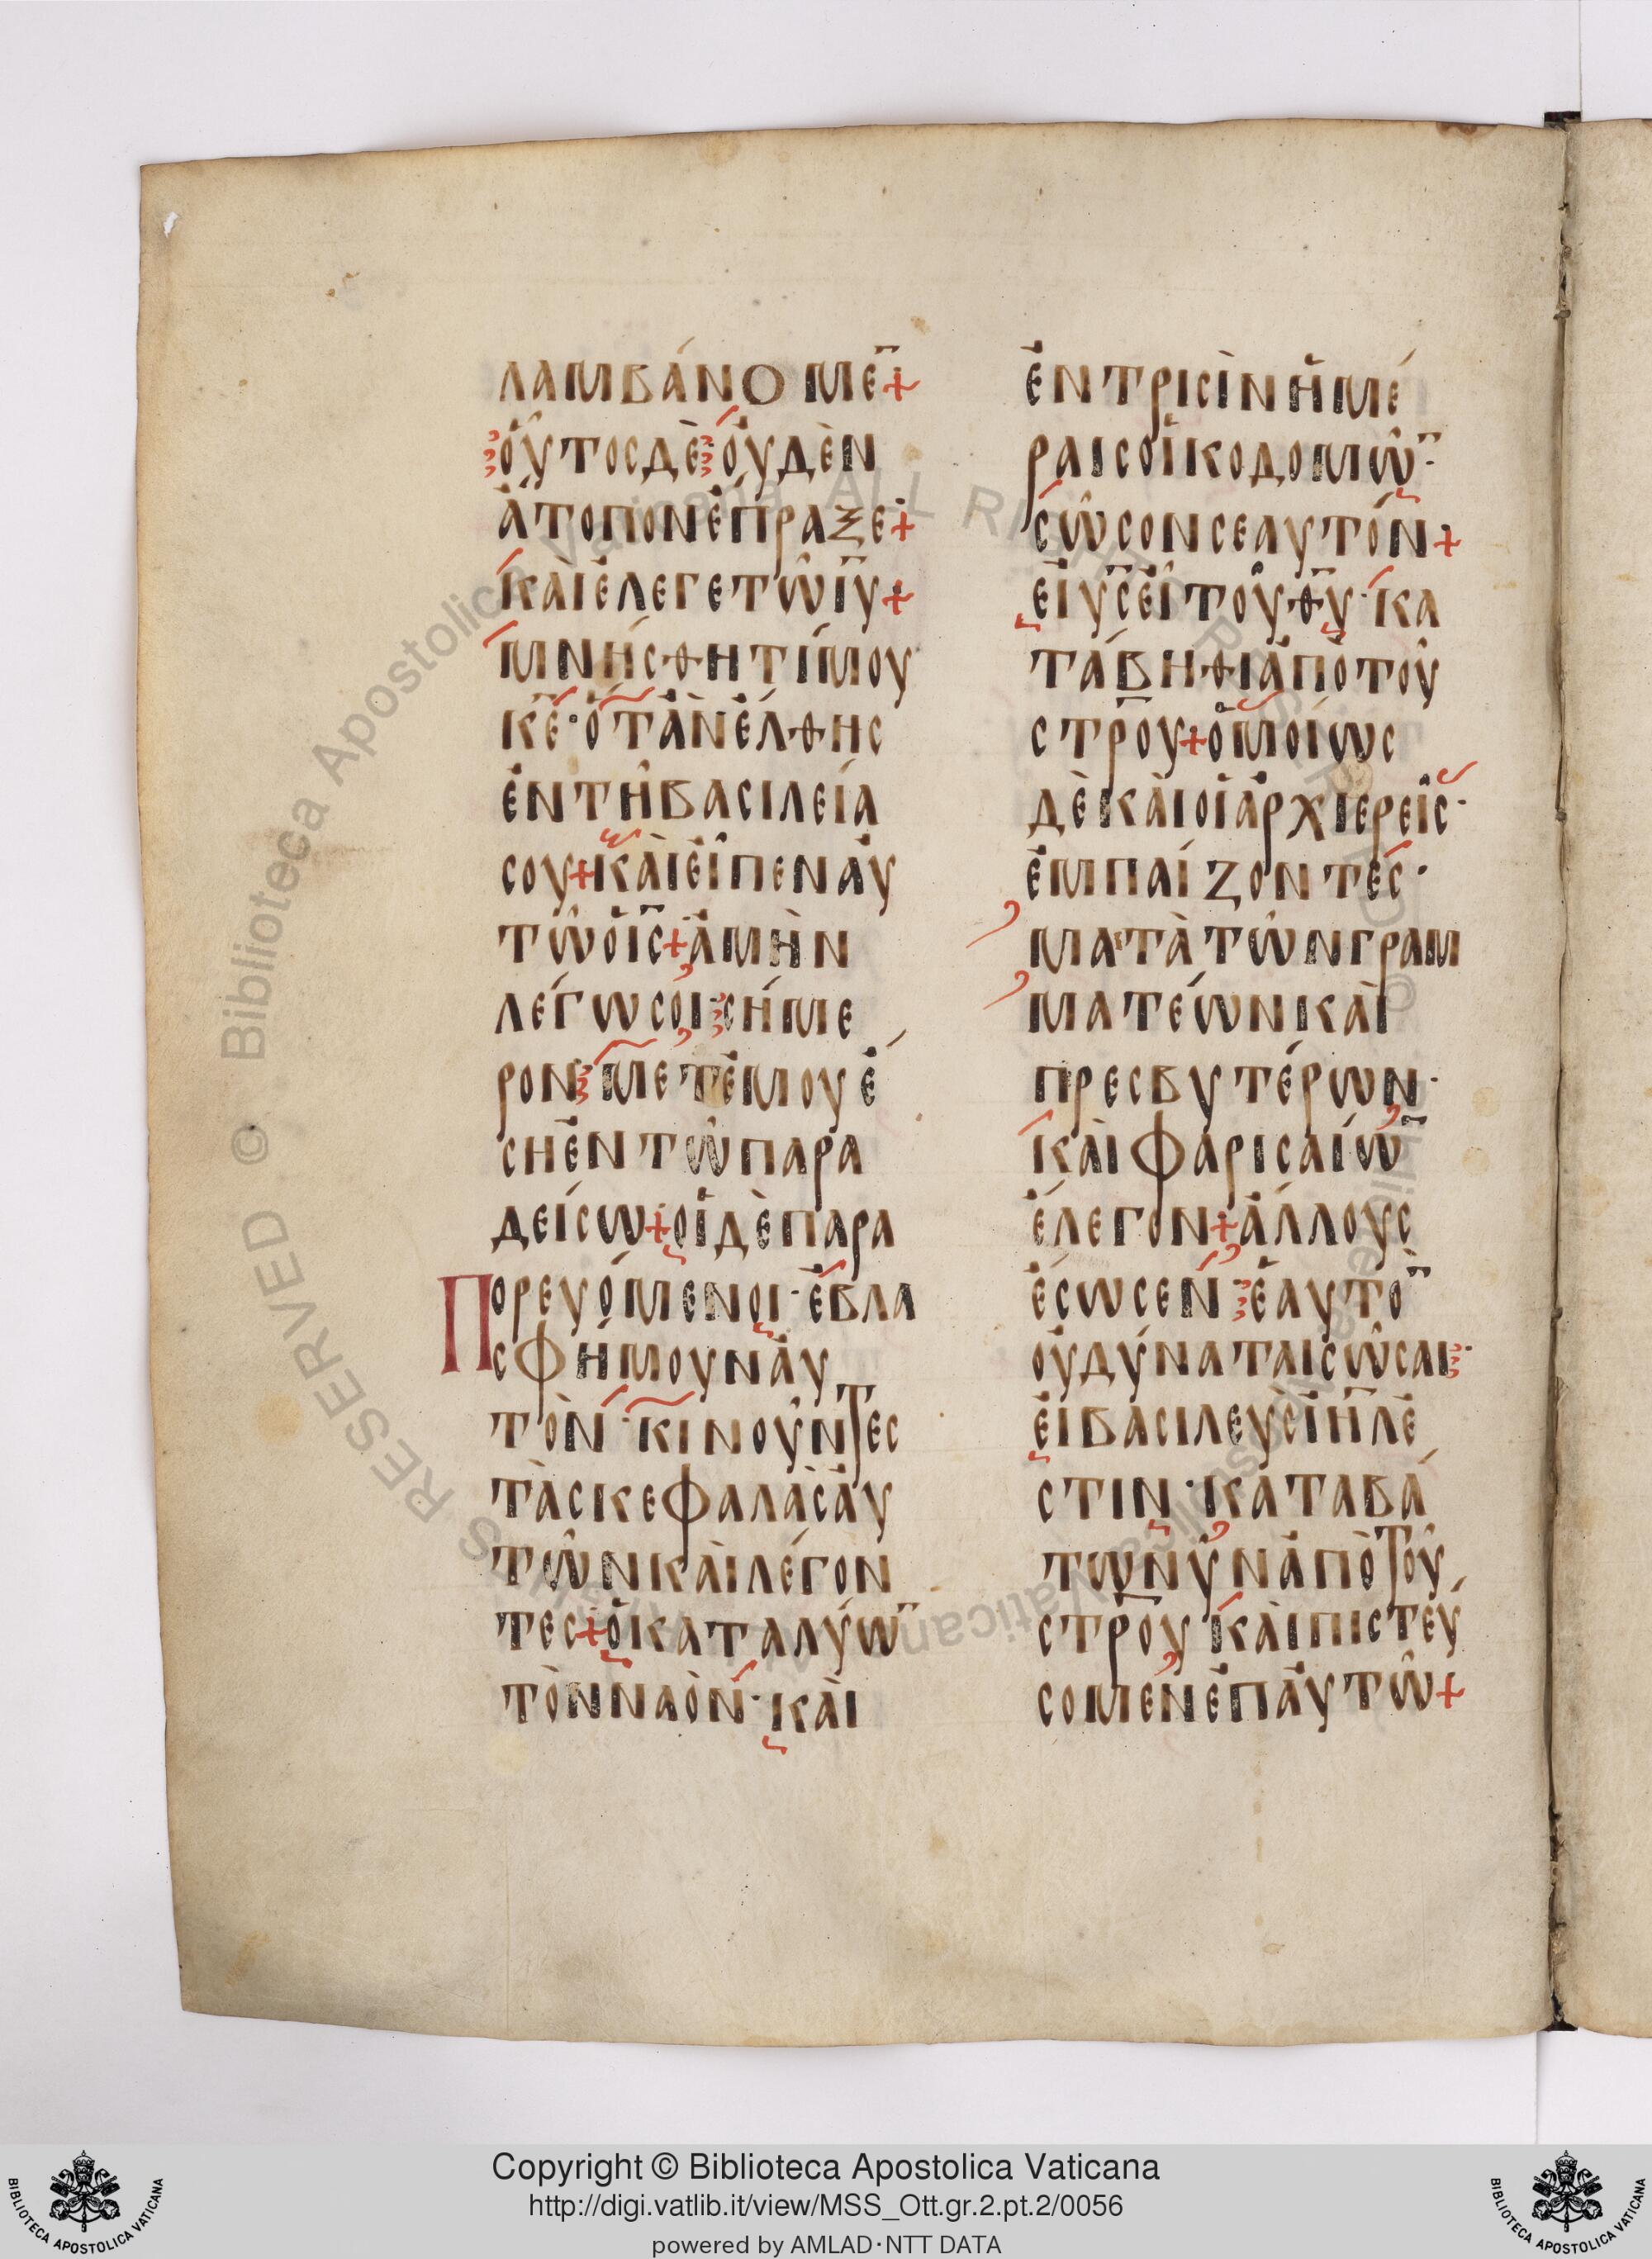 λαμβάνομε̅+
ὀῦτοσδὲ ὀυδὲν
ἄτοπονἔπραξε+
κὰιἔλεγετῶι̅υ̅+
μνήσθητίμου
κ̅ε̅·ὅτἂνἔλθησ
ἐντῆβασιλεία
σου+κὰιἐῖπεναυ
τῶὁι̅σ̅+ἀμὴν
λέγωσοι·σήμε
ρον·μετἐμουἔ
σηἐντῶπαρα
δείσω+ὁιδὲπαρα
Πορευόμενοι·ἐβλα
σφήμουναυ
τὸν·κινοῦντεσ
τὰσκεφαλὰσἀυ
τῶνκὰιλέγον
τεσ+ὁκαταλύω̅
τὸνναὸν·κὰι
ἐντρισὶνἡμέ
ραισὀικοδομῶ̅·
σῶσονσεαυτόν+
ἐιυ̅σ̅ἐῖτοῦθ̅υ̅·κα
τάβηθιἀπὸτοῦ
σ̅τ̅ρ̅ο̅υ̅+ὁμοίωσ
δὲκὰιὁιἀρχιερεῖσ·
ἐμπαίζοντεσ·
μετὰτῶνγραμ
ματέωνκὰι
πρεσβυτέρων·
κὰιφαρισαίω̅
ἔλεγον+ἄλλουσ
ἔσωσεν·ἑαυτο̅
ὀυδύναταισῶσαι·
ἐιβασιλευσι̅η̅λ̅ἐ
στιν·καταβά
τωνῦνἀπὸτοῦ
σ̅τ̅ρ̅ο̅υ̅κὰιπιστεύ
σομενἐπἀυτῶ+
Copyright © Biblioteca Apostolica Vaticana
http://digi.vatlib.it/view/MSS_Ott.gr.2.pt.2/0056
powered by AMLAD·NTT DATA
BIBLIOTECA APOSTOLICA VATICANA
BIBLIOTECA APOSTOLICA VATICANA